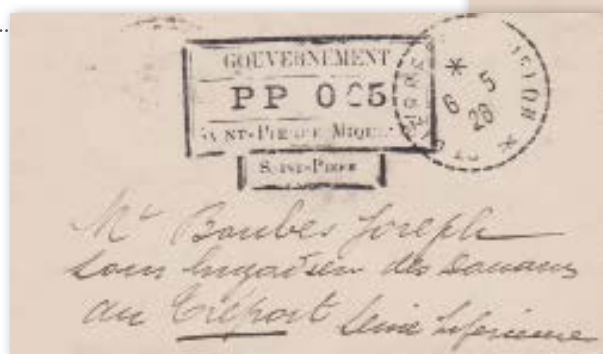 GOUVERNEMENT
PP 0 05
SAINT-PIERRE MIQUEL
SAINT-PIERRE
6 5
26
Mr Boubes Joseph
sous brigadier des Douanes
au Tréport Seine Inférieure